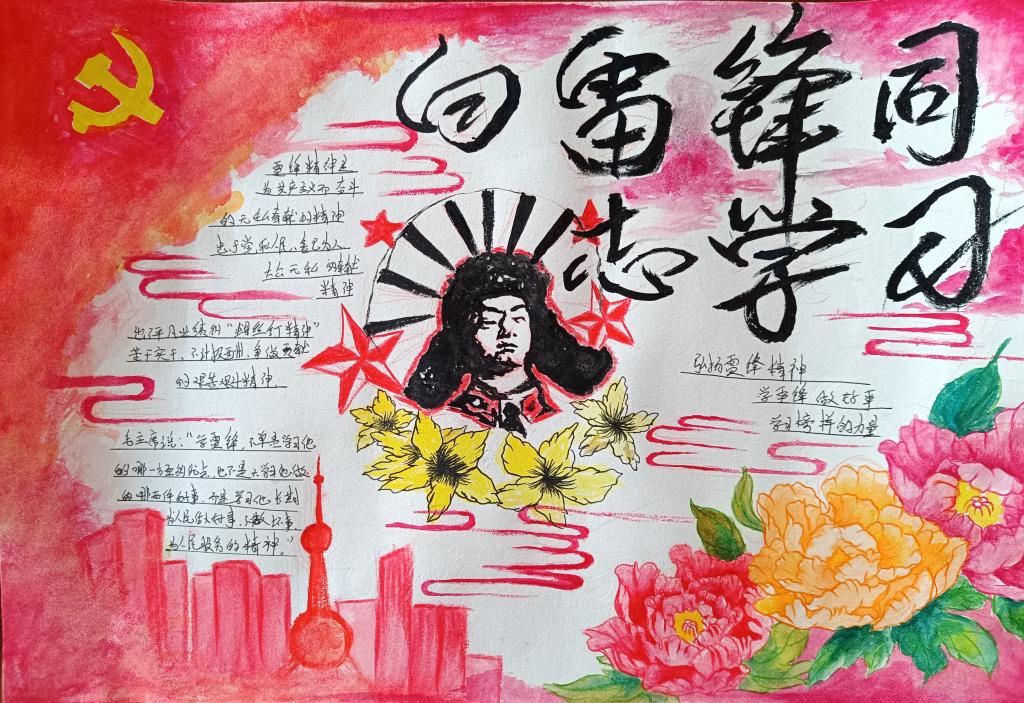 向雷锋同
志学习
雷锋精神是
为共产主义而奋斗
的无私奉献的精神
忠于党和人民、舍己为人、
大公无私的奉献
精神
出平凡业绩的“螺丝钉精神”
苦干实干、不计报酬、争做贡献
的艰苦奋斗精神
弘扬雷锋精神
学雷锋做好事
学习榜样的力量
毛主席说：“学雷锋，不单是学习他
的哪一方面的优点，也不是只学习他做
的哪两件好事，而是学习他长期
为人民做好事，不做坏事，
为人民服务的精神。”